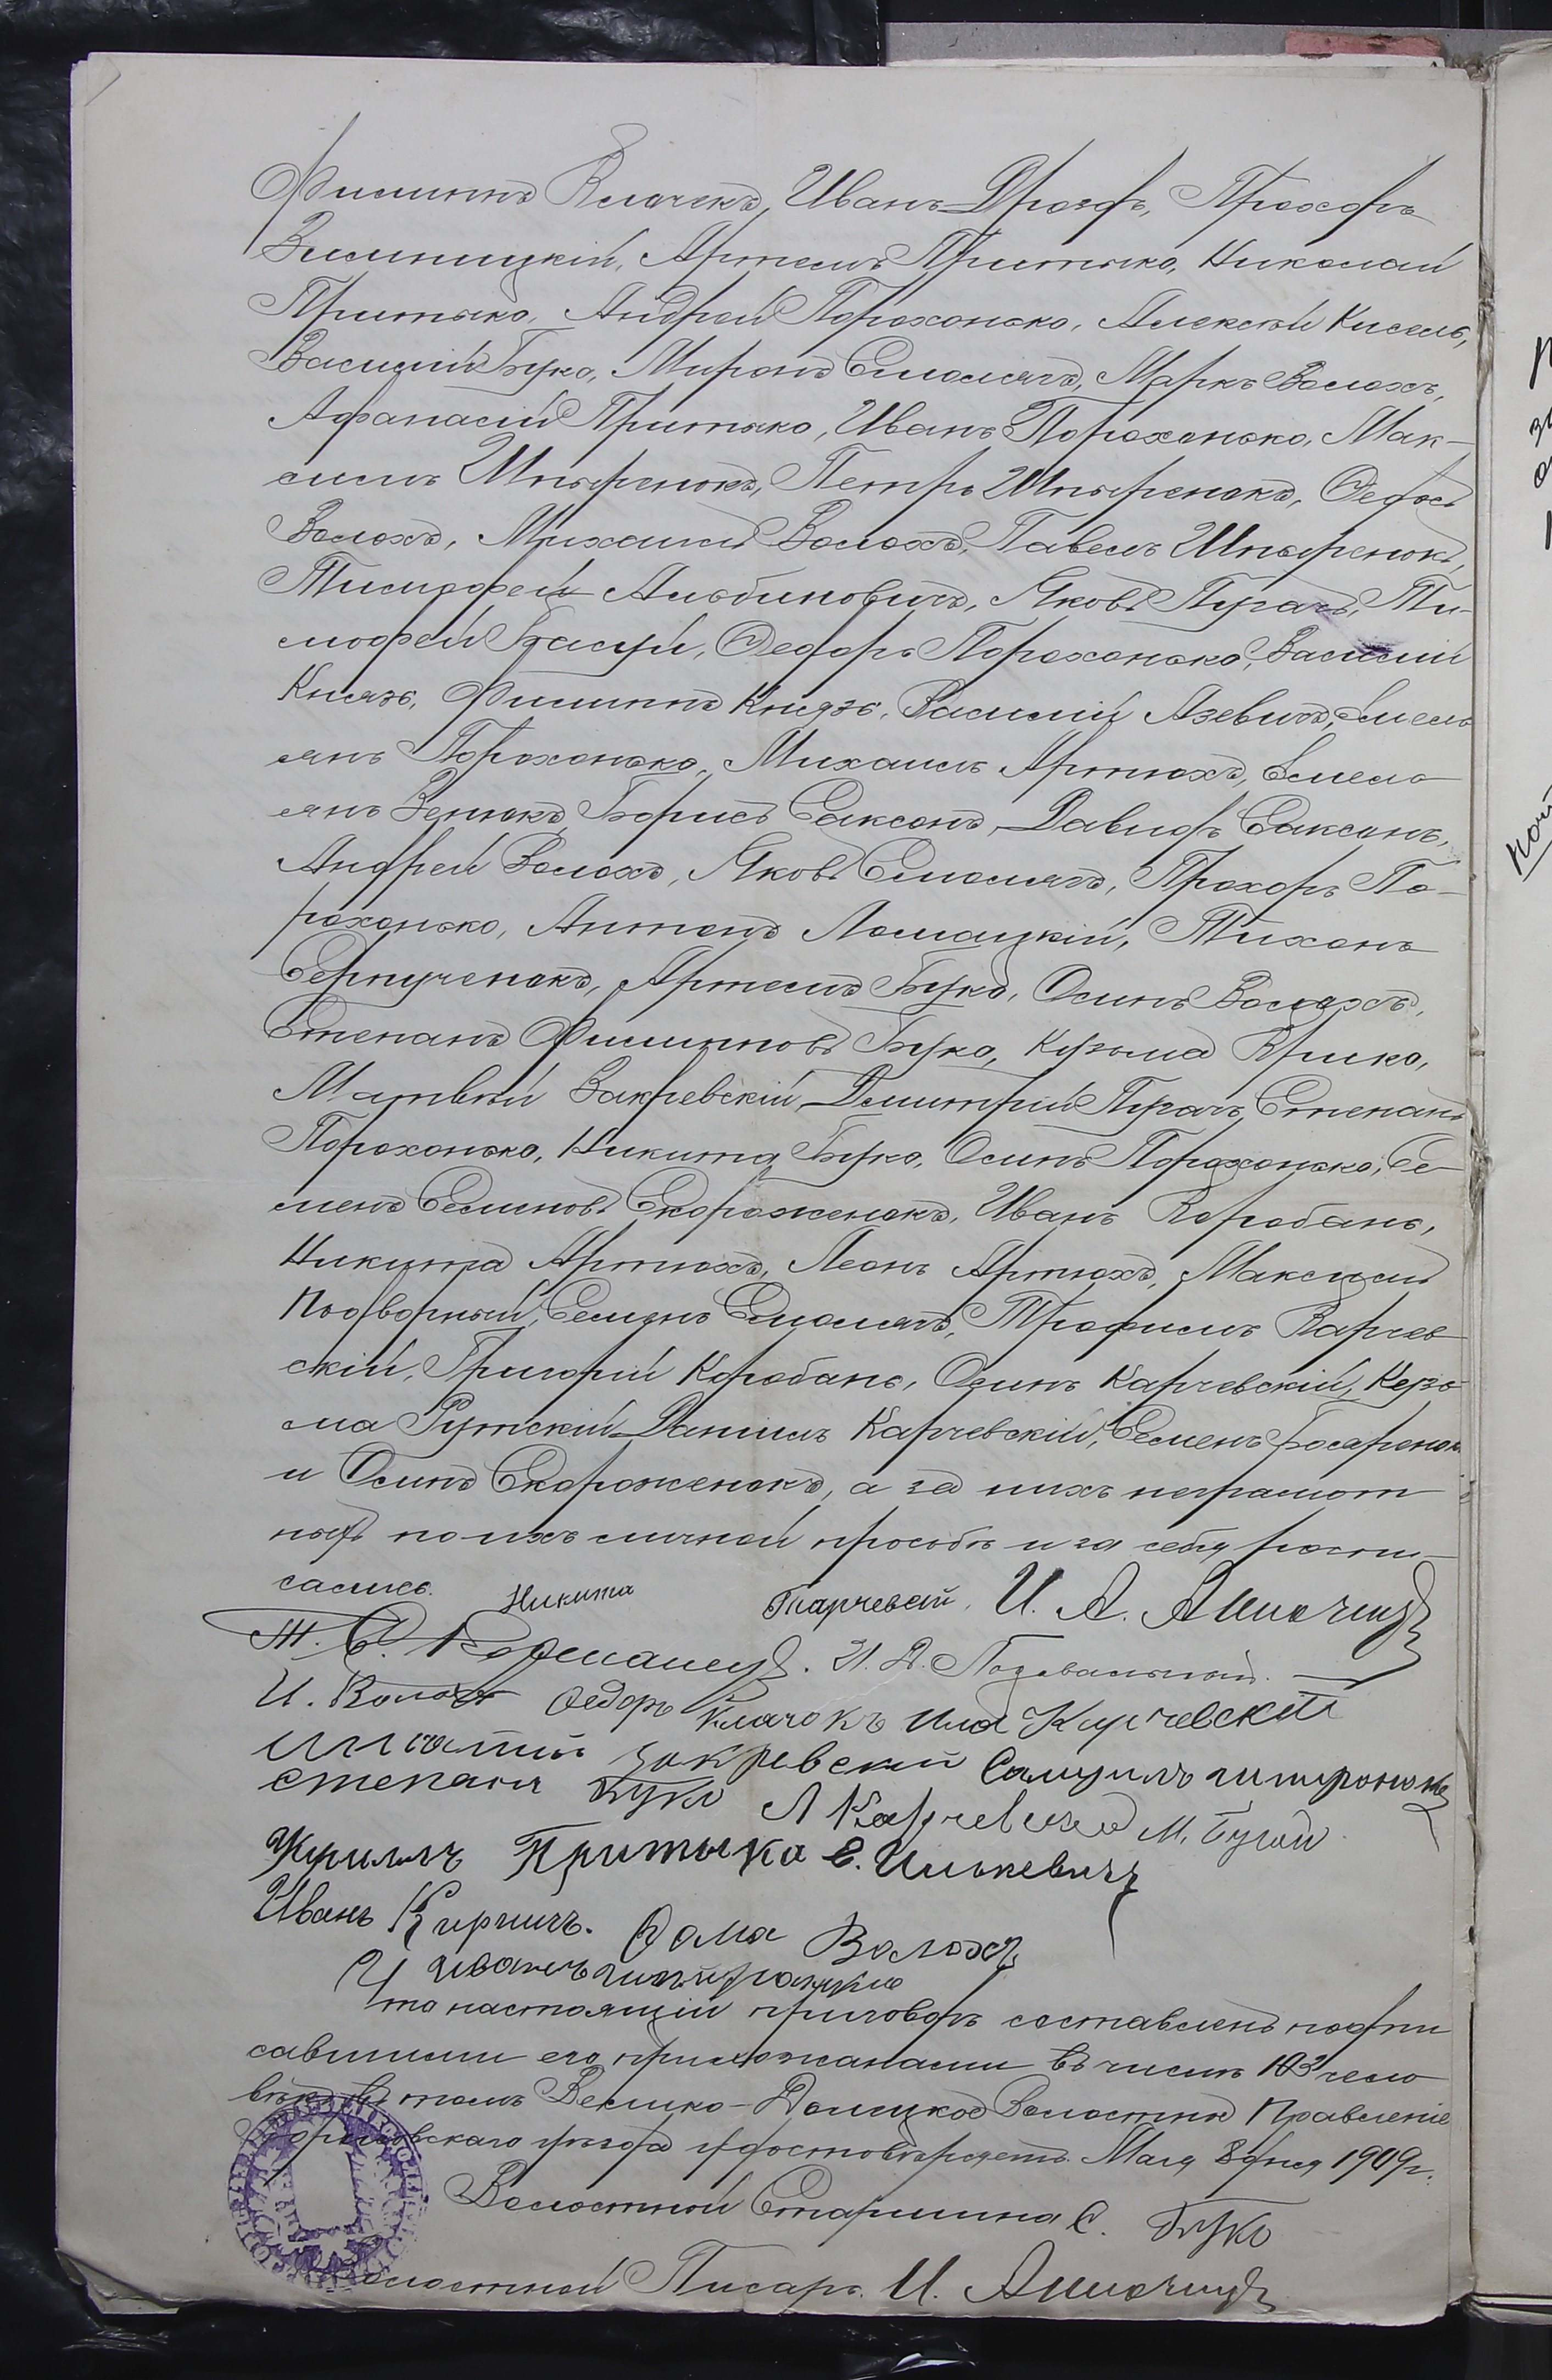 Филиппъ Клачекъ, Иванъ Дроздъ, Прохоръ
Вилитицкій, Артемъ Притыко, Николай
Притыко, Андрей Порохонько, Алексѣй Кисель,
Василій Буко, Миронъ Смолягъ, Маркъ Волохъ,
Афанасій Притыко, Иванъ Порохонько, Мак-
симъ Шпыренокъ, Петръ Шпыренокъ, Федосъ
Волохъ, Михаилъ Волохъ, Павелъ Шпыренокъ,
Тимофей Альбиновичъ, Яковъ Пугачъ, Ти-
мофей Федоръ Порохонько, Василій
Князь, Филиппъ Князь, Василій Азевичъ, Емель
янъ Порохонько, Михаилъ Артюхъ, Емель
янъ Зенюкъ, Борисъ Саксонъ, Давидъ Саксонъ,
Андрей Волохъ, Яковъ Смолягъ, Прохоръ По-
рохонько, Антонъ Ломацкій, Тихонъ
Серпученокъ, Артемъ Буко, Осипъ Волохъ,
Степанъ Филипповъ Буко, Кузьма Крико,
Матвѣй Закревскій, Дмитрій Пугачъ, Степанъ
Порохонько, Никита Буко, Осипъ Порохонько, Се-
менъ Семеновъ Скороженокъ, Иванъ Коробань,
Никита Артюхъ, Леонъ Артюхъ, Максимъ
Подворный, Семенъ Смолягъ, Трофимъ Карчев
скій, Григорій Коробань, Осипъ Карчевскій, Кузь
ма Рутскій, Даніилъ Карчевскій, Семенъ
и Осипъ Скороженокъ, а за нихъ неграмот
ныхъ по ихъ личной просьбѣ и за себя распи-
сались. Никита Карчевскій, И. А.
И. Д. Подвальный.
И. Волохъ Федоръ Клачокъ Илья Карчевскій
Игнатій Закревскій Самуилъ
Степанъ Буко А Карчевскій М. Бугай
Кириллъ Притыка Е. Ивкевичъ
Иванъ Кирпичъ. Фома Волохъ
И Иванъ
Что настоящій приговоръ составленъ подпи
савшими его прихожанами въ числѣ 103 чело
вѣкъ, въ томъ Велико-Долецкое Волостное Правленіе
Борисовскаго уѣзда удостовѣряетъ. Мая 8 дня 1909 г.
Волостной Старшина С. Буко
Волостной Писарь И.